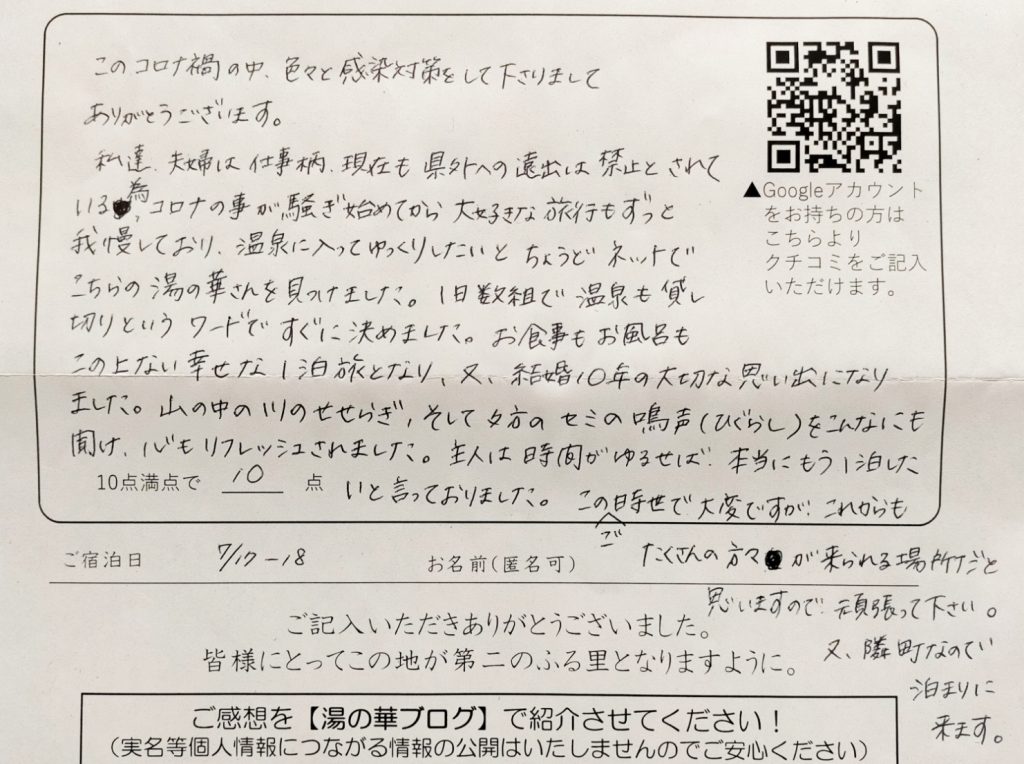 このコロナ禍の中、色々と感染対策をして下さりまして
ありがとうございます。
私達、夫婦は仕事柄、現在も県外への遠出は禁止とされて
いる為、コロナの事が騒ぎ始めてから大好きな旅行もずっと
我慢しており、温泉に入ってゆっくりしたいとちょうどネットで
こちらの湯の華さんを見つけました。1日数組で温泉も貸し
切りというワードですぐに決めました。お食事もお風呂も
この上ない幸せな1泊旅となり、又、結婚10年の大切な思い出になり
ました。山の中の川のせせらぎ、そして夕方のセミの鳴声(ひぐらし)をこんなにも
聞け、心もリフレッシュされました。主人は時間がゆるせば、本当にもう1泊した
いと言っておりました。この時世で大変ですが、これからも
ご
たくさんの方々が来られる場所だと
思いますので、頑張って下さい。
又、隣町なので
泊まりに
来ます。
▲Googleアカウント
をお持ちの方は
こちらより
クチコミをご記入
いただけます。
10点満点で 10 点
ご宿泊日 7/17-18 お名前(匿名可)
ご記入いただきありがとうございました。
皆様にとってこの地が第二のふる里となりますように。
ご感想を【湯の華ブログ】で紹介させてください!
(実名等個人情報につながる情報の公開はいたしませんのでご安心ください)